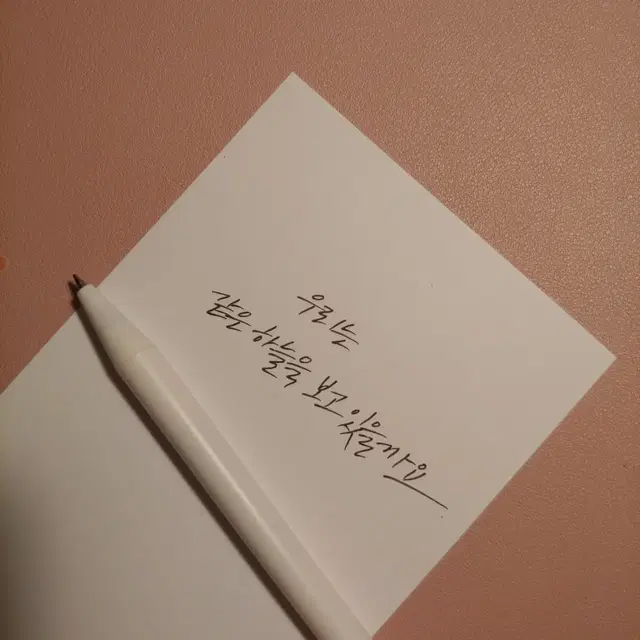 우리는
같은 하늘을 보고 있을까요